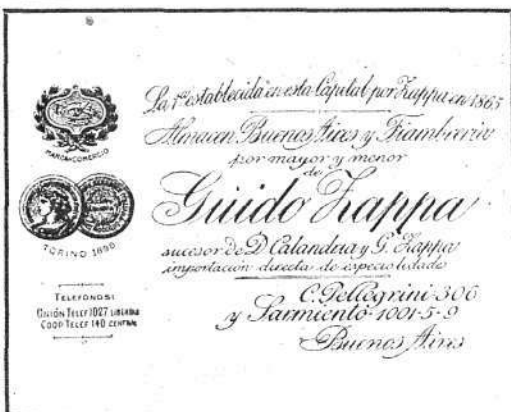 MARCA COMERCIO
TORINO 1898
TELEFONOS:
UNIÓN TELEF 1027 LIBERTAD
COOP TELEF 140 CENTRAL
La 1ra establecida en esta Capital por Zappa en 1865
Almacen Buenos Aires y Fiambreria
por mayor y menor
de
Guido Zappa
sucesor de D. Calandra y G. Zappa
importación directa de especialidades
C. Pellegrini 306
y Sarmiento 1001-5-9
Buenos Aires